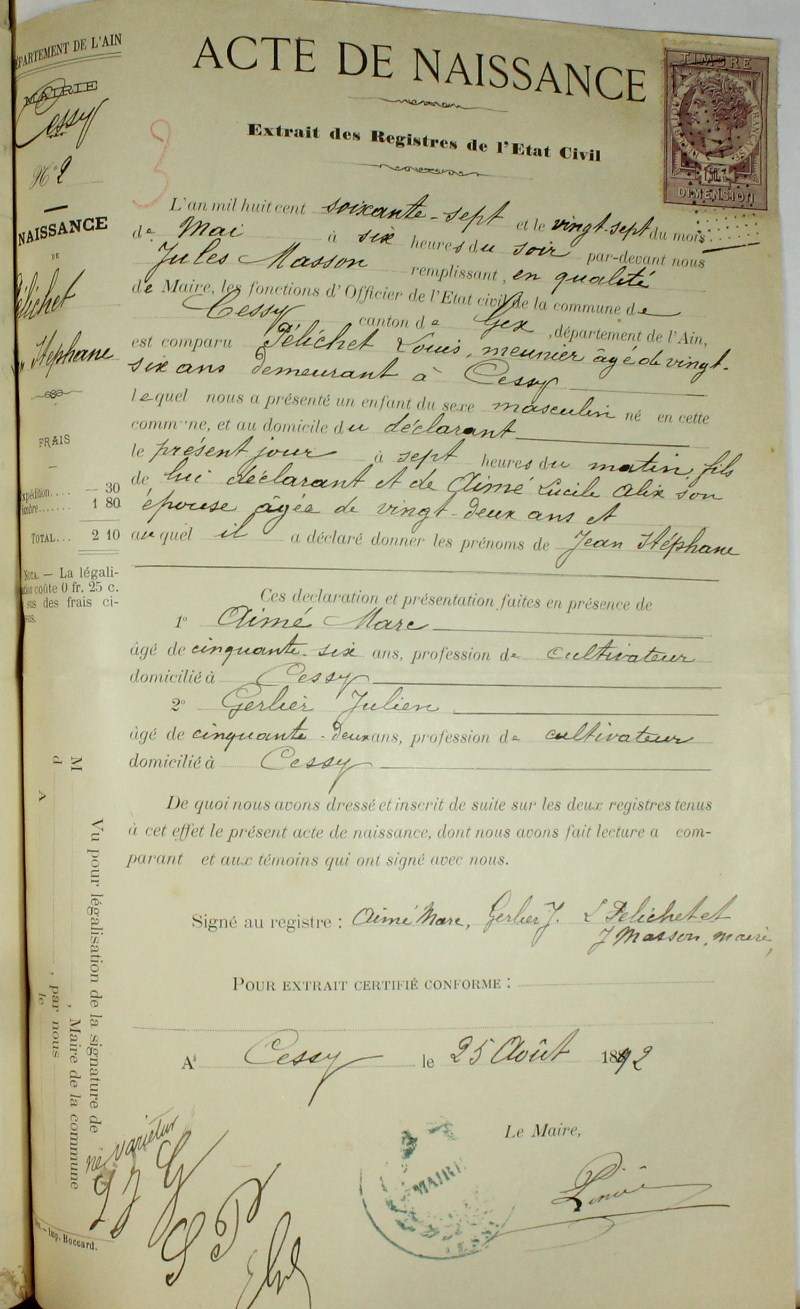 DÉPARTEMENT DE L'AIN
MAIRIE
Cessy
N° 2
NAISSANCE
DE
Pélichet
Stéphane
FRAIS
Expédition.... - 30
Timbre....... 1 80
TOTAL... 2 10
NOTA. - La légali-
sation coûte 0 fr. 25 c.
en sus des frais ci-
dessus.
ACTE DE NAISSANCE
Extrait des Registres de l'Etat Civil
3
TIMBRE
DIMENSION
L'an mil huit cent soixante-sept et le vingt-sept du mois
de Mai à six heures du soir par-devant nous
Jules Masson remplissant, en qualité
de Maire, les fonctions d'Officier de l'Etat civil de la commune de
Cessy canton de Gex, département de l'Ain,
est comparu Pélichet Louis, meunier âgé de vingt-
six ans demeurant à Cessy
lequel nous a présenté un enfant du sexe masculin né en cette
commune, et au domicile du déclarant
le présent jour à sept heures du matin, fils
de lui déclarant et de Aimé Lucile Alix son
épouse âgée de vingt-deux ans et
auquel il a déclaré donner les prénoms de Jean Stéphane
Ces déclaration et présentation faites en présence de
1° Aimé Marc
âgé de cinquante-six ans, profession de cultivateur
domicilié à Cessy
2° Gerlier Julien
âgé de cinquante-deux ans, profession de cultivateur
domicilié à Cessy
De quoi nous avons dressé et inscrit de suite sur les deux registres tenus
à cet effet le présent acte de naissance, dont nous avons fait lecture a com-
parant et aux témoins qui ont signé avec nous.
Signé au registre : Aimé Marc, Gerlier J. L Pelichet et
J Masson, maire,
POUR EXTRAIT CERTIFIÉ CONFORME :
A Cessy le 25 Août 1892
Le Maire,
MAIRIE
Vu pour légalisation de la signature de
M , Maire de la commune
d , par nous
A le
ne varietur
Imp. Boccard.